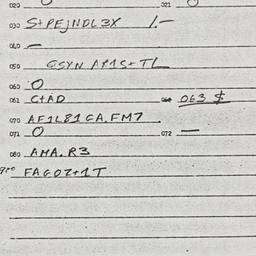 020 O 021 O
030 S+PEJNDL3X 1.-
040 —
050 GSYN AP1S+TL
060 O
061 C+AD 063 $
070 AF1L81CA.FM7
071 O 072 —
080 AMA.R3
900 FAGOZ+1T